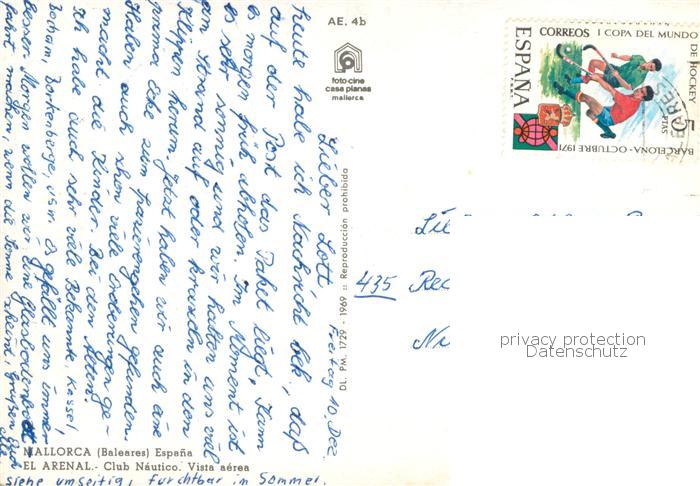 AE. 4b
foto-cine
casa planas
mallorca
CORREOS I COPA DEL MUNDO DE HOCKEY
ESPAÑA
5 PTAS
BARCELONA - OCTUBRE 1971
DL. PM. 1729 - 1969 :: Reproducción prohibida
Freitag 10. Dez.
Lieber Lott
heute habe ich Nachricht bek., daß
auf der Post das Paket liegt, kann
es morgen früh abholen. Im Moment ist
es sehr sonnig und wir halten uns viel
am Strand auf oder kraxeln in den
Klippen herum. Jetzt haben wir auch eine
prima Ecke zum
Haben auch schon viele Eroberungen ge-
macht die Kinder. Bei den Alten.
Ich habe auch sehr viele Bekannte, Kassel,
Bochum, Borkenberge, usw. es gefällt uns immer
besser. Morgen wollen wir eine Glasbodenboot
fahrt machen, wenn die Sonne scheint. Grüßen Euch
Alle
MALLORCA (Baleares) España
EL ARENAL.- Club Náutico. Vista aérea
siehe umseitig, furchtbar im Sommer.
435
privacy protection
Datenschutz